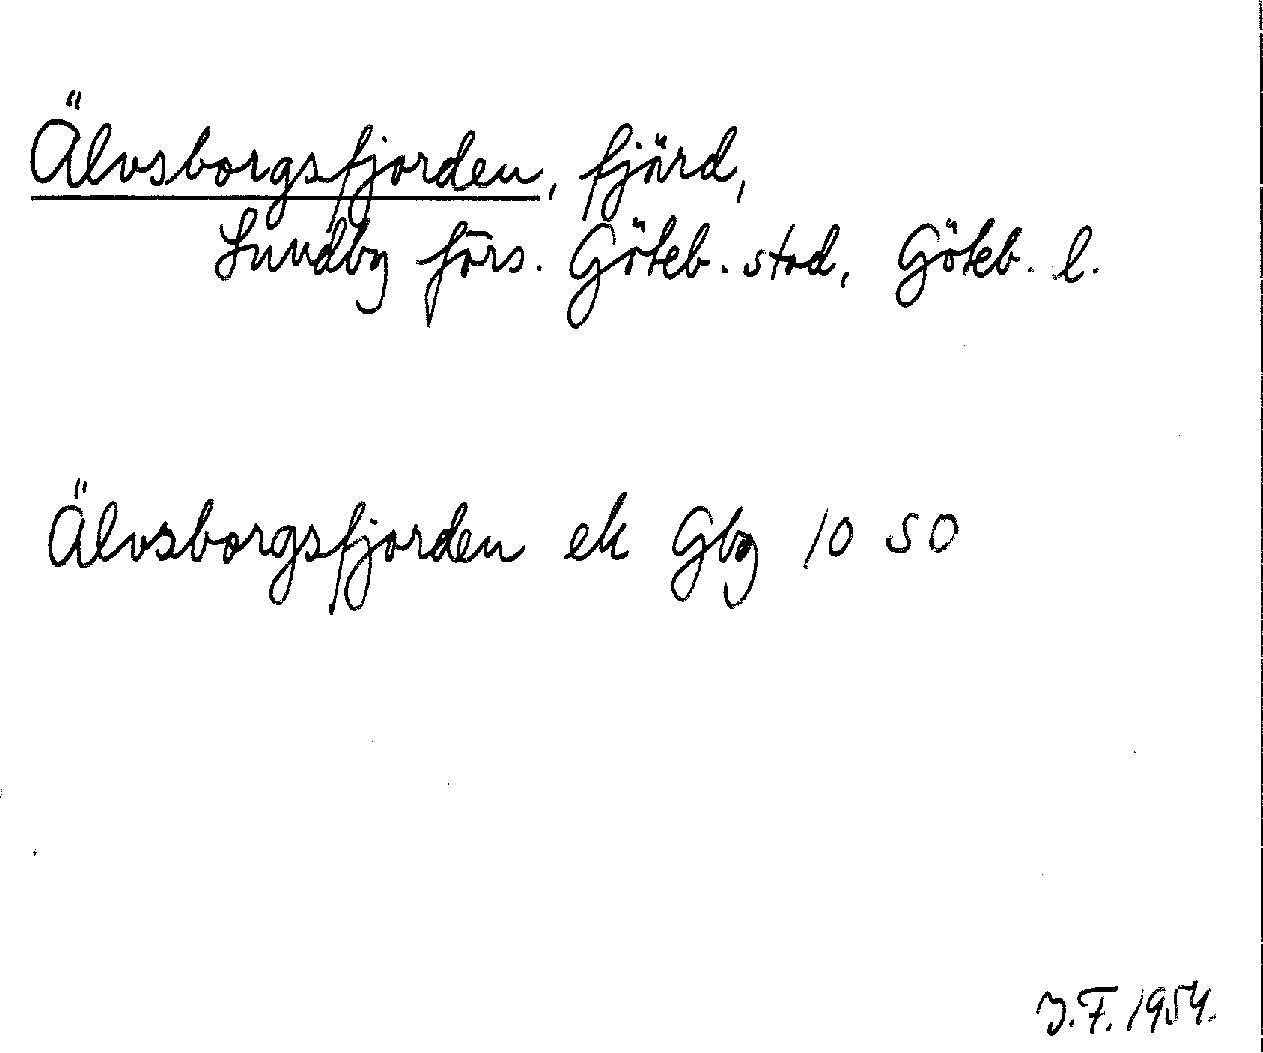 Älvsborgsfjorden, fjärd,
Lundby förs. Göteb. stad, Göteb. l.
Älvsborgsfjorden ek Gbg 10 SO
J.F. 1954.